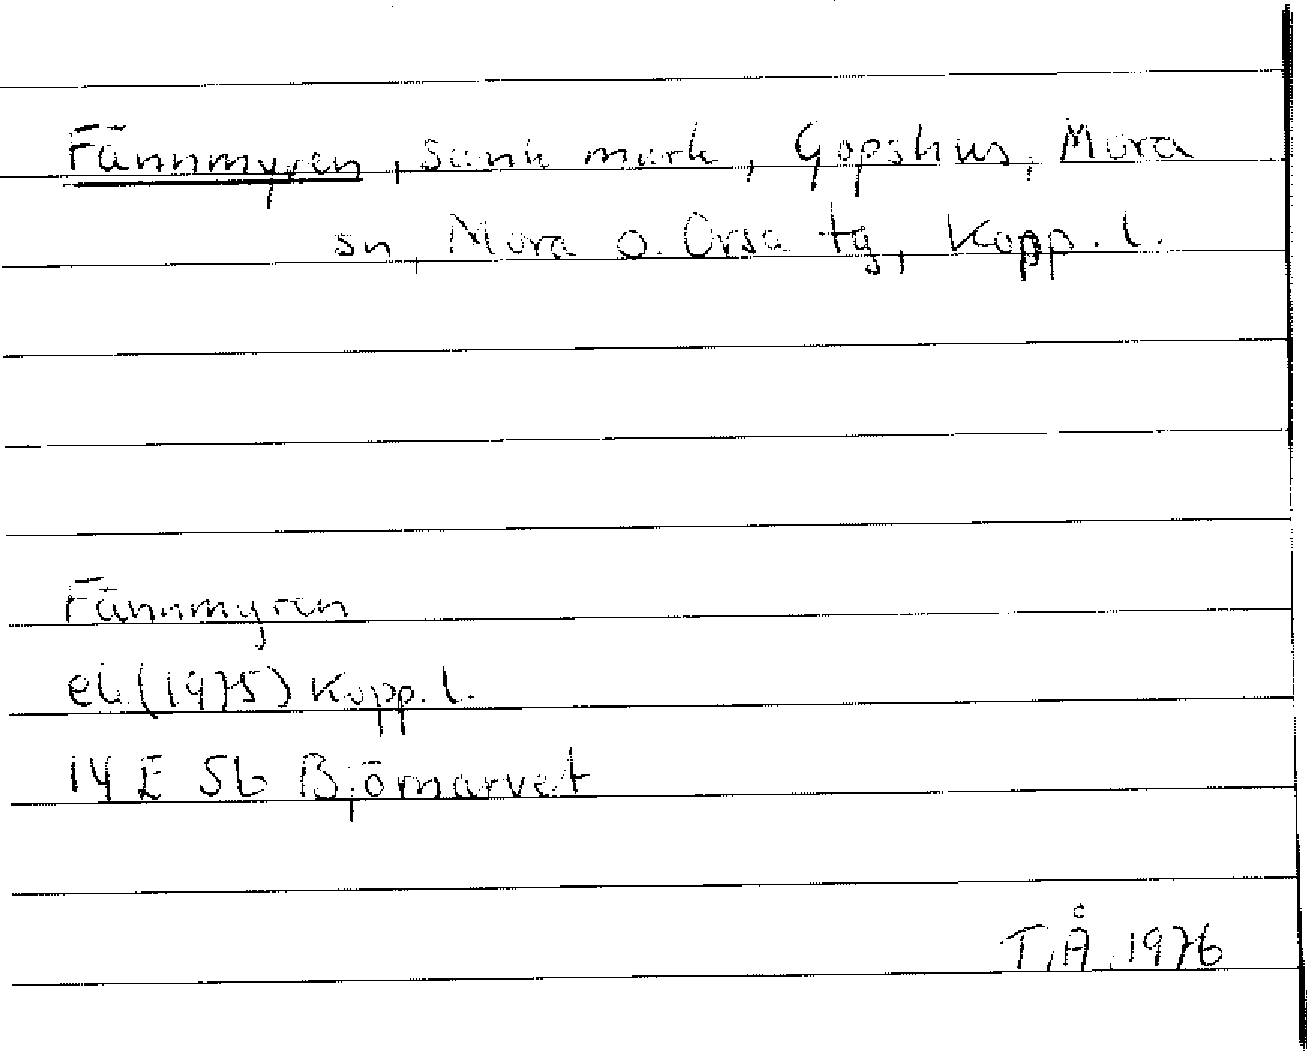 Fännmyren, sank mark, Gopshus, Mora
sn, Mora o. Orsa tg, Kopp. l.
Fännmyren
ek. (1975) Kopp. l.
14 E 5b Björnarvet
T.Å. 1976